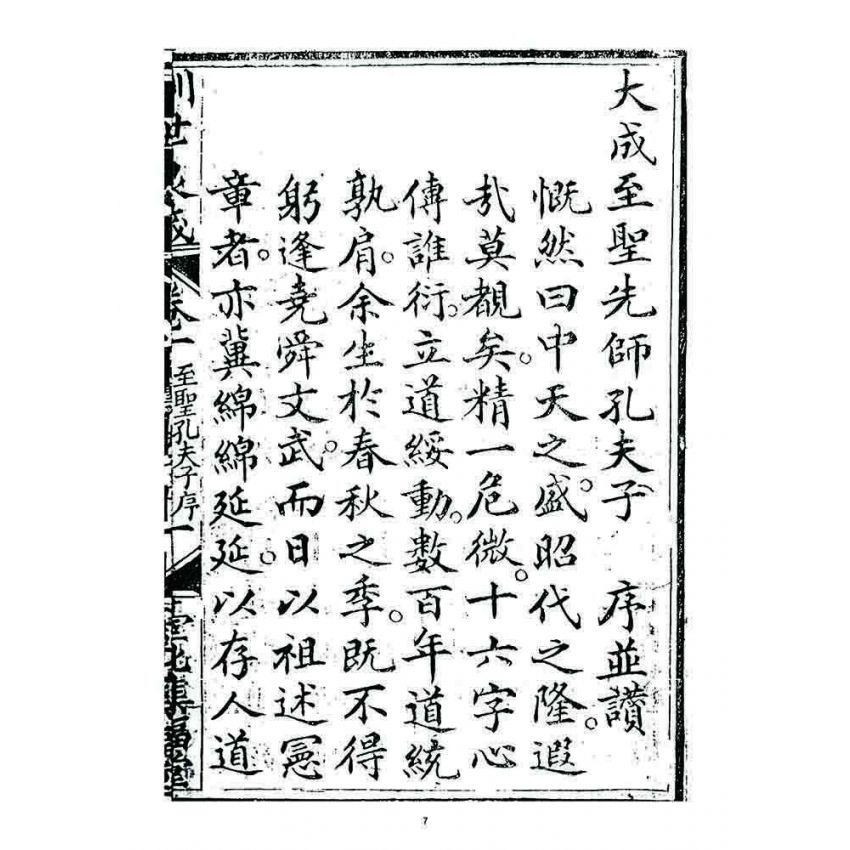 大成至聖先師孔夫子 序並讃
慨然曰中天之盛。昭代之隆。遐
哉莫覩矣。精一危微。十六字心
傳誰衍。立道綏動。數百年道統
孰肩。余生於春秋之季。既不得
躬逢堯舜文武。而日以祖述憲
章者。亦冀綿綿延延。以存人道
卷一
至聖孔夫子序
一
7